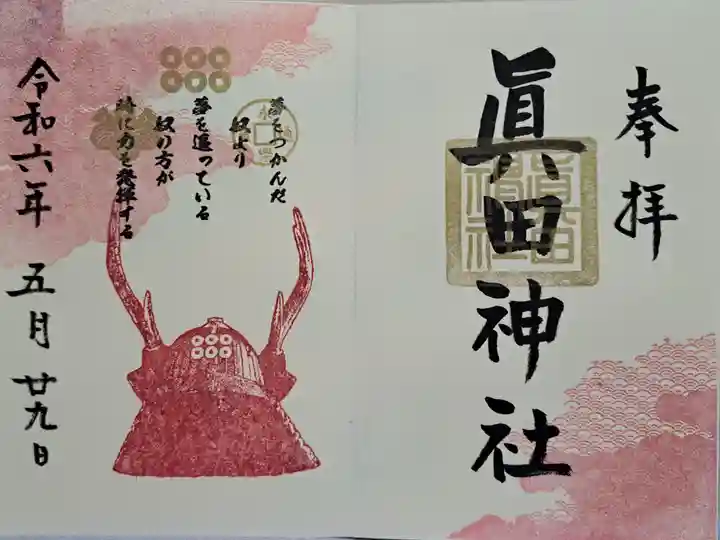 奉拝
眞田神社
眞田神社
夢をつかんだ
奴より
夢を追っている
奴の方が
時に力を発揮する
令和六年 五月 廿九日